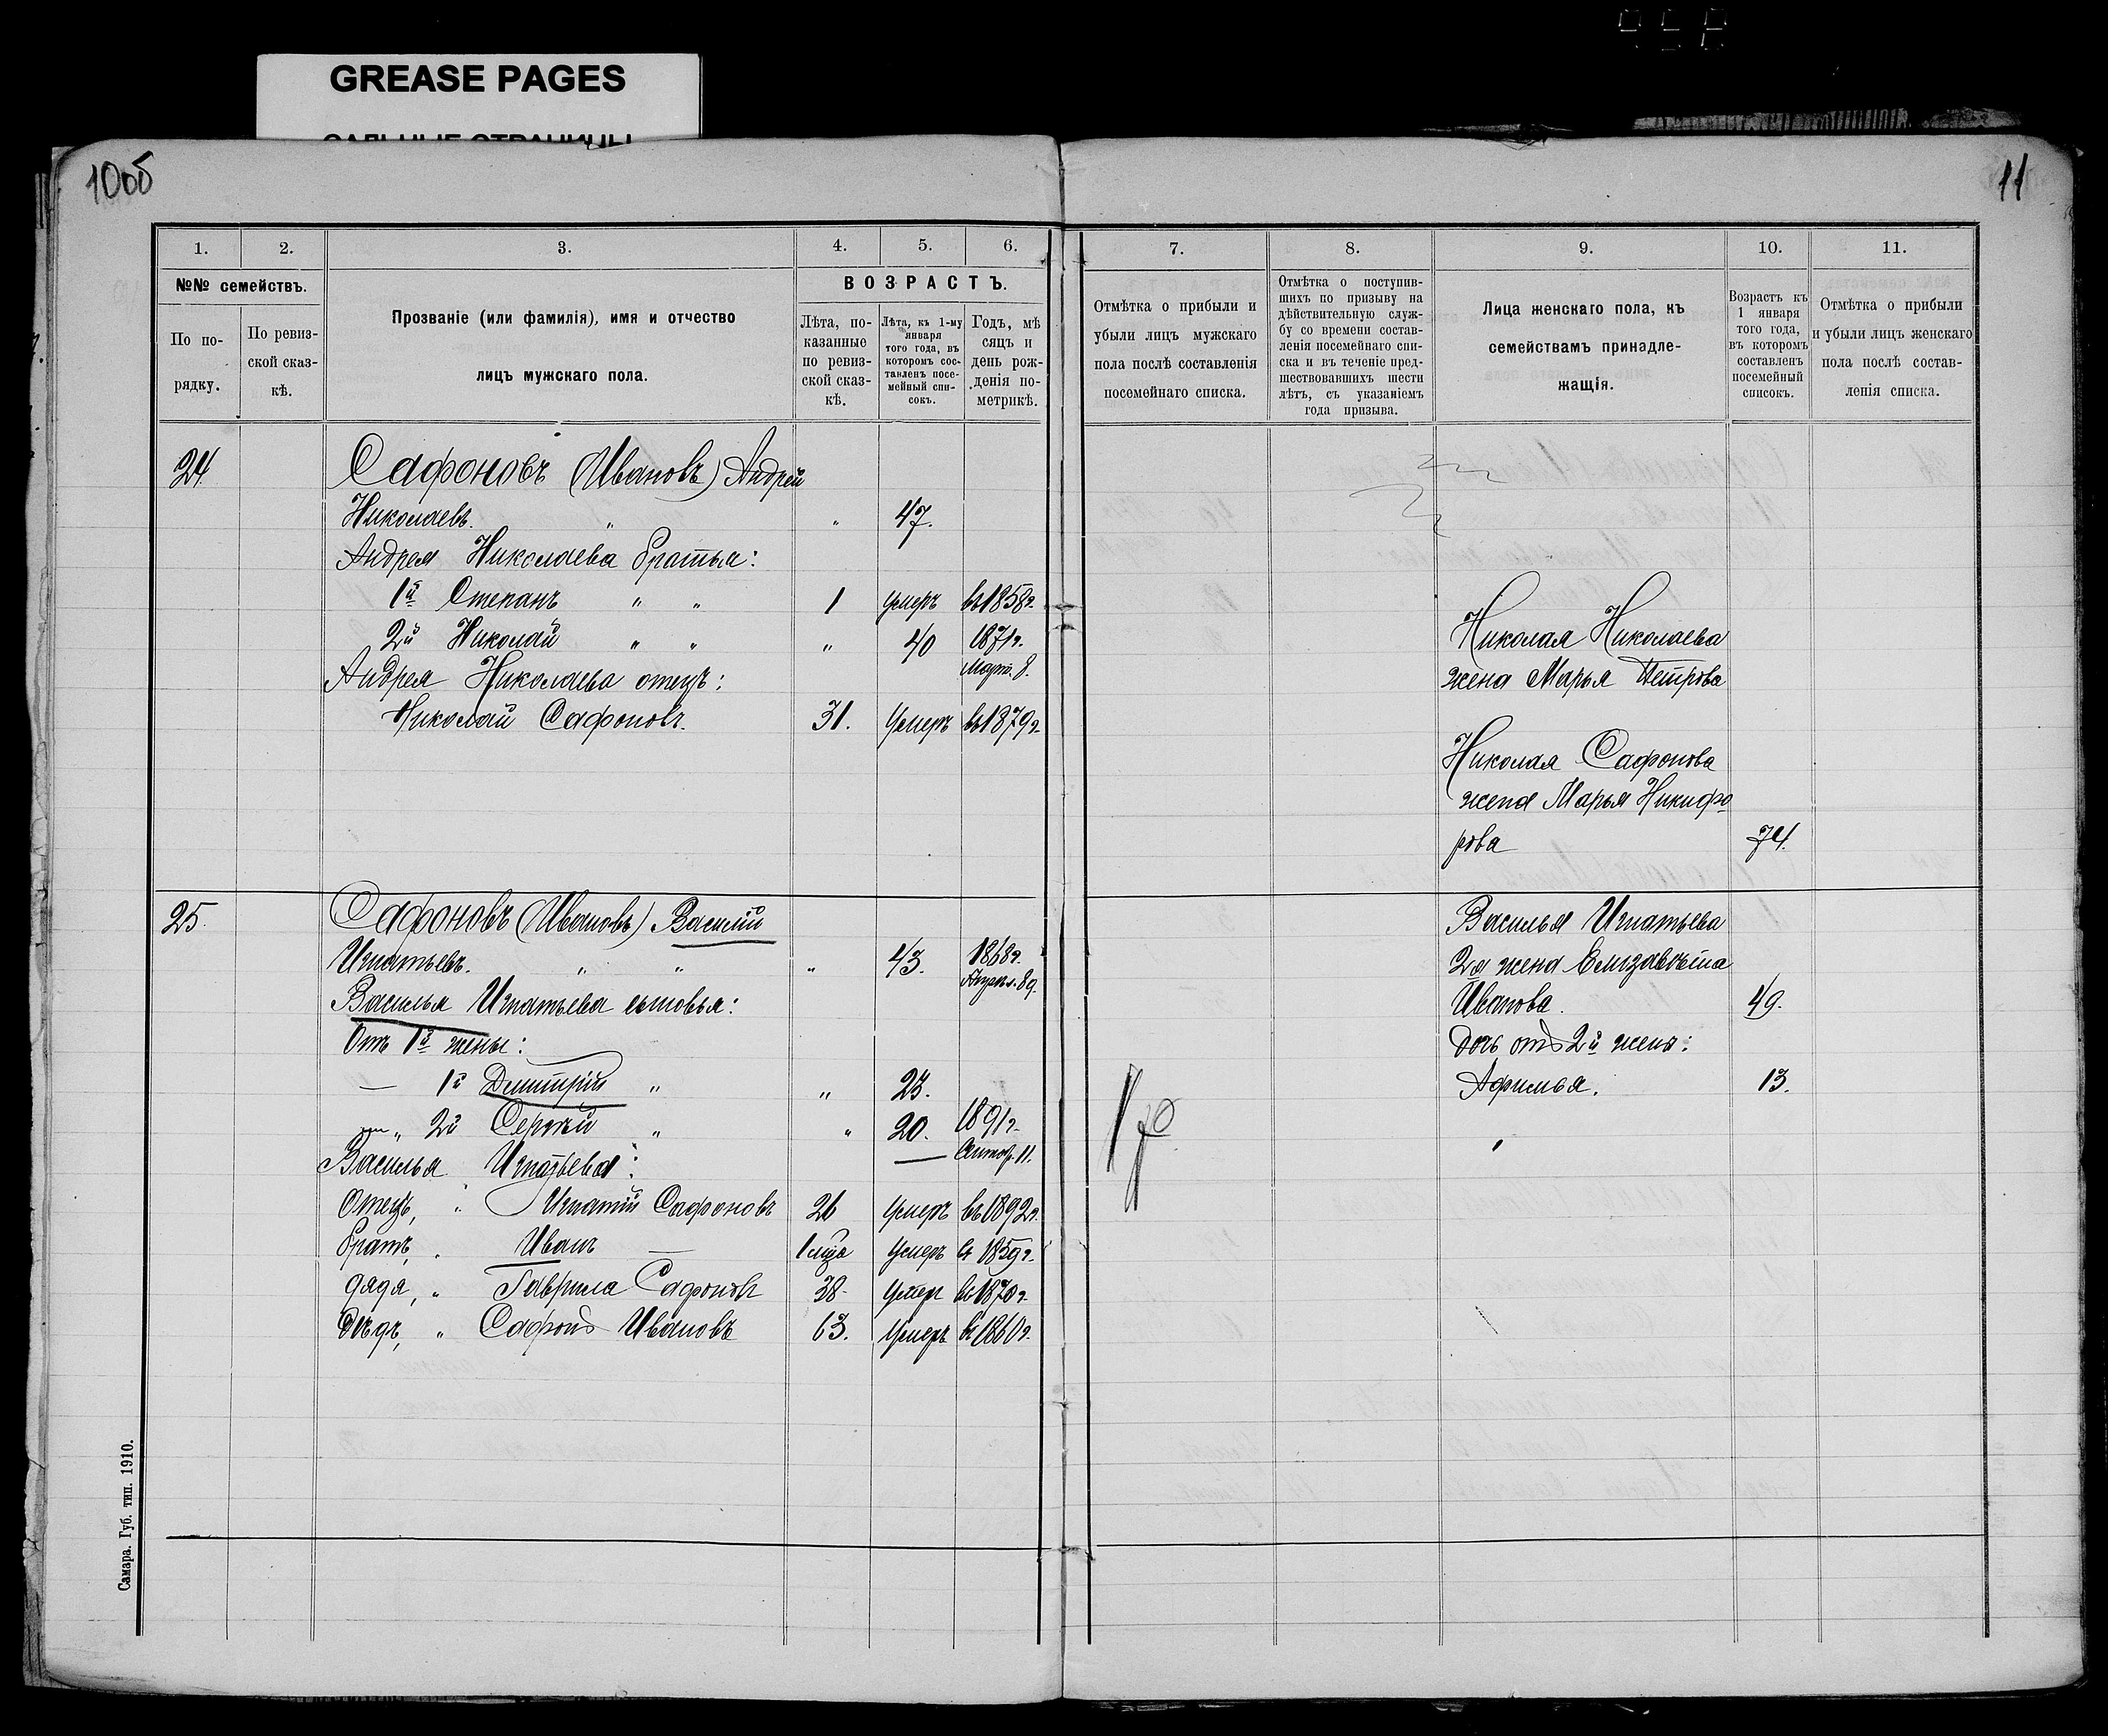 GREASE PAGES
САЛЬНЫЕ СТРАНИЦЫ
10об
11
1.
2.
3.
4.
5.
6.
№№ семействъ.
По порядку.
По ревизской сказкѣ.
Прозваніе (или фамилія), имя и отчество
лицъ мужскаго пола.
ВОЗРАСТЪ.
Лѣта, показанные по ревизской сказкѣ.
Лѣта, къ 1-му января того года, въ которомъ составленъ посемейный списокъ.
Годъ, мѣсяцъ и день рожденія по метрикѣ.
7.
8.
9.
10.
11.
Отмѣтка о прибыли и убыли лицъ мужскаго пола послѣ составленія посемейнаго списка.
Отмѣтка о поступившихъ по призыву на дѣйствительную службу со времени составленія посемейнаго списка и въ теченіе предшествовавшихъ шести лѣтъ, съ указаніемъ года призыва.
Лица женскаго пола, къ семействамъ принадлежащія.
Возрастъ къ 1 января того года, въ которомъ составленъ посемейный списокъ.
Отмѣтка о прибыли и убыли лицъ женскаго пола послѣ составленія списка.
24
Сафоновъ (Ивановъ) Андрей
Николаевъ. " " 47.
Андрея Николаева братья:
1й Степанъ " " 1 умеръ въ 1858г.
2й Николай " " " 40 1871г. Март. 8.
Андрея Николаева отецъ:
Николай Сафоновъ. 31. Умеръ въ 1879г.
Николая Николаева
жена Марья Петрова
Николая Сафонова
жена Марья Никифо
рова 74.
25.
Сафоновъ (Ивановъ) Василий
Игнатьевъ. " " " 43. 1868г. Апрѣл. 8д.
Василья Игнатьева сыновья:
Отъ 1й жены:
— 1й Дмитрій " " 23.
— " 2й Сергѣй " " 20. 1891г. Октяб. 11.
Василья Игнатьева:
Отецъ, " Игнатій Сафоновъ 26 Умеръ въ 1892г.
братъ, " Иванъ — 1 мца Умеръ въ 1859г.
дядя, " Гаврила Сафоновъ 38. Умеръ въ 1870г.
Дѣдъ, " Сафонъ Ивановъ 63. Умеръ въ 1860г.
Василья Игнатьева
2я жена Елизавѣта
Иванова. 49.
Дочь отъ 2й жены:
Афимья. 13.
Самара. Губ. тип. 1910.